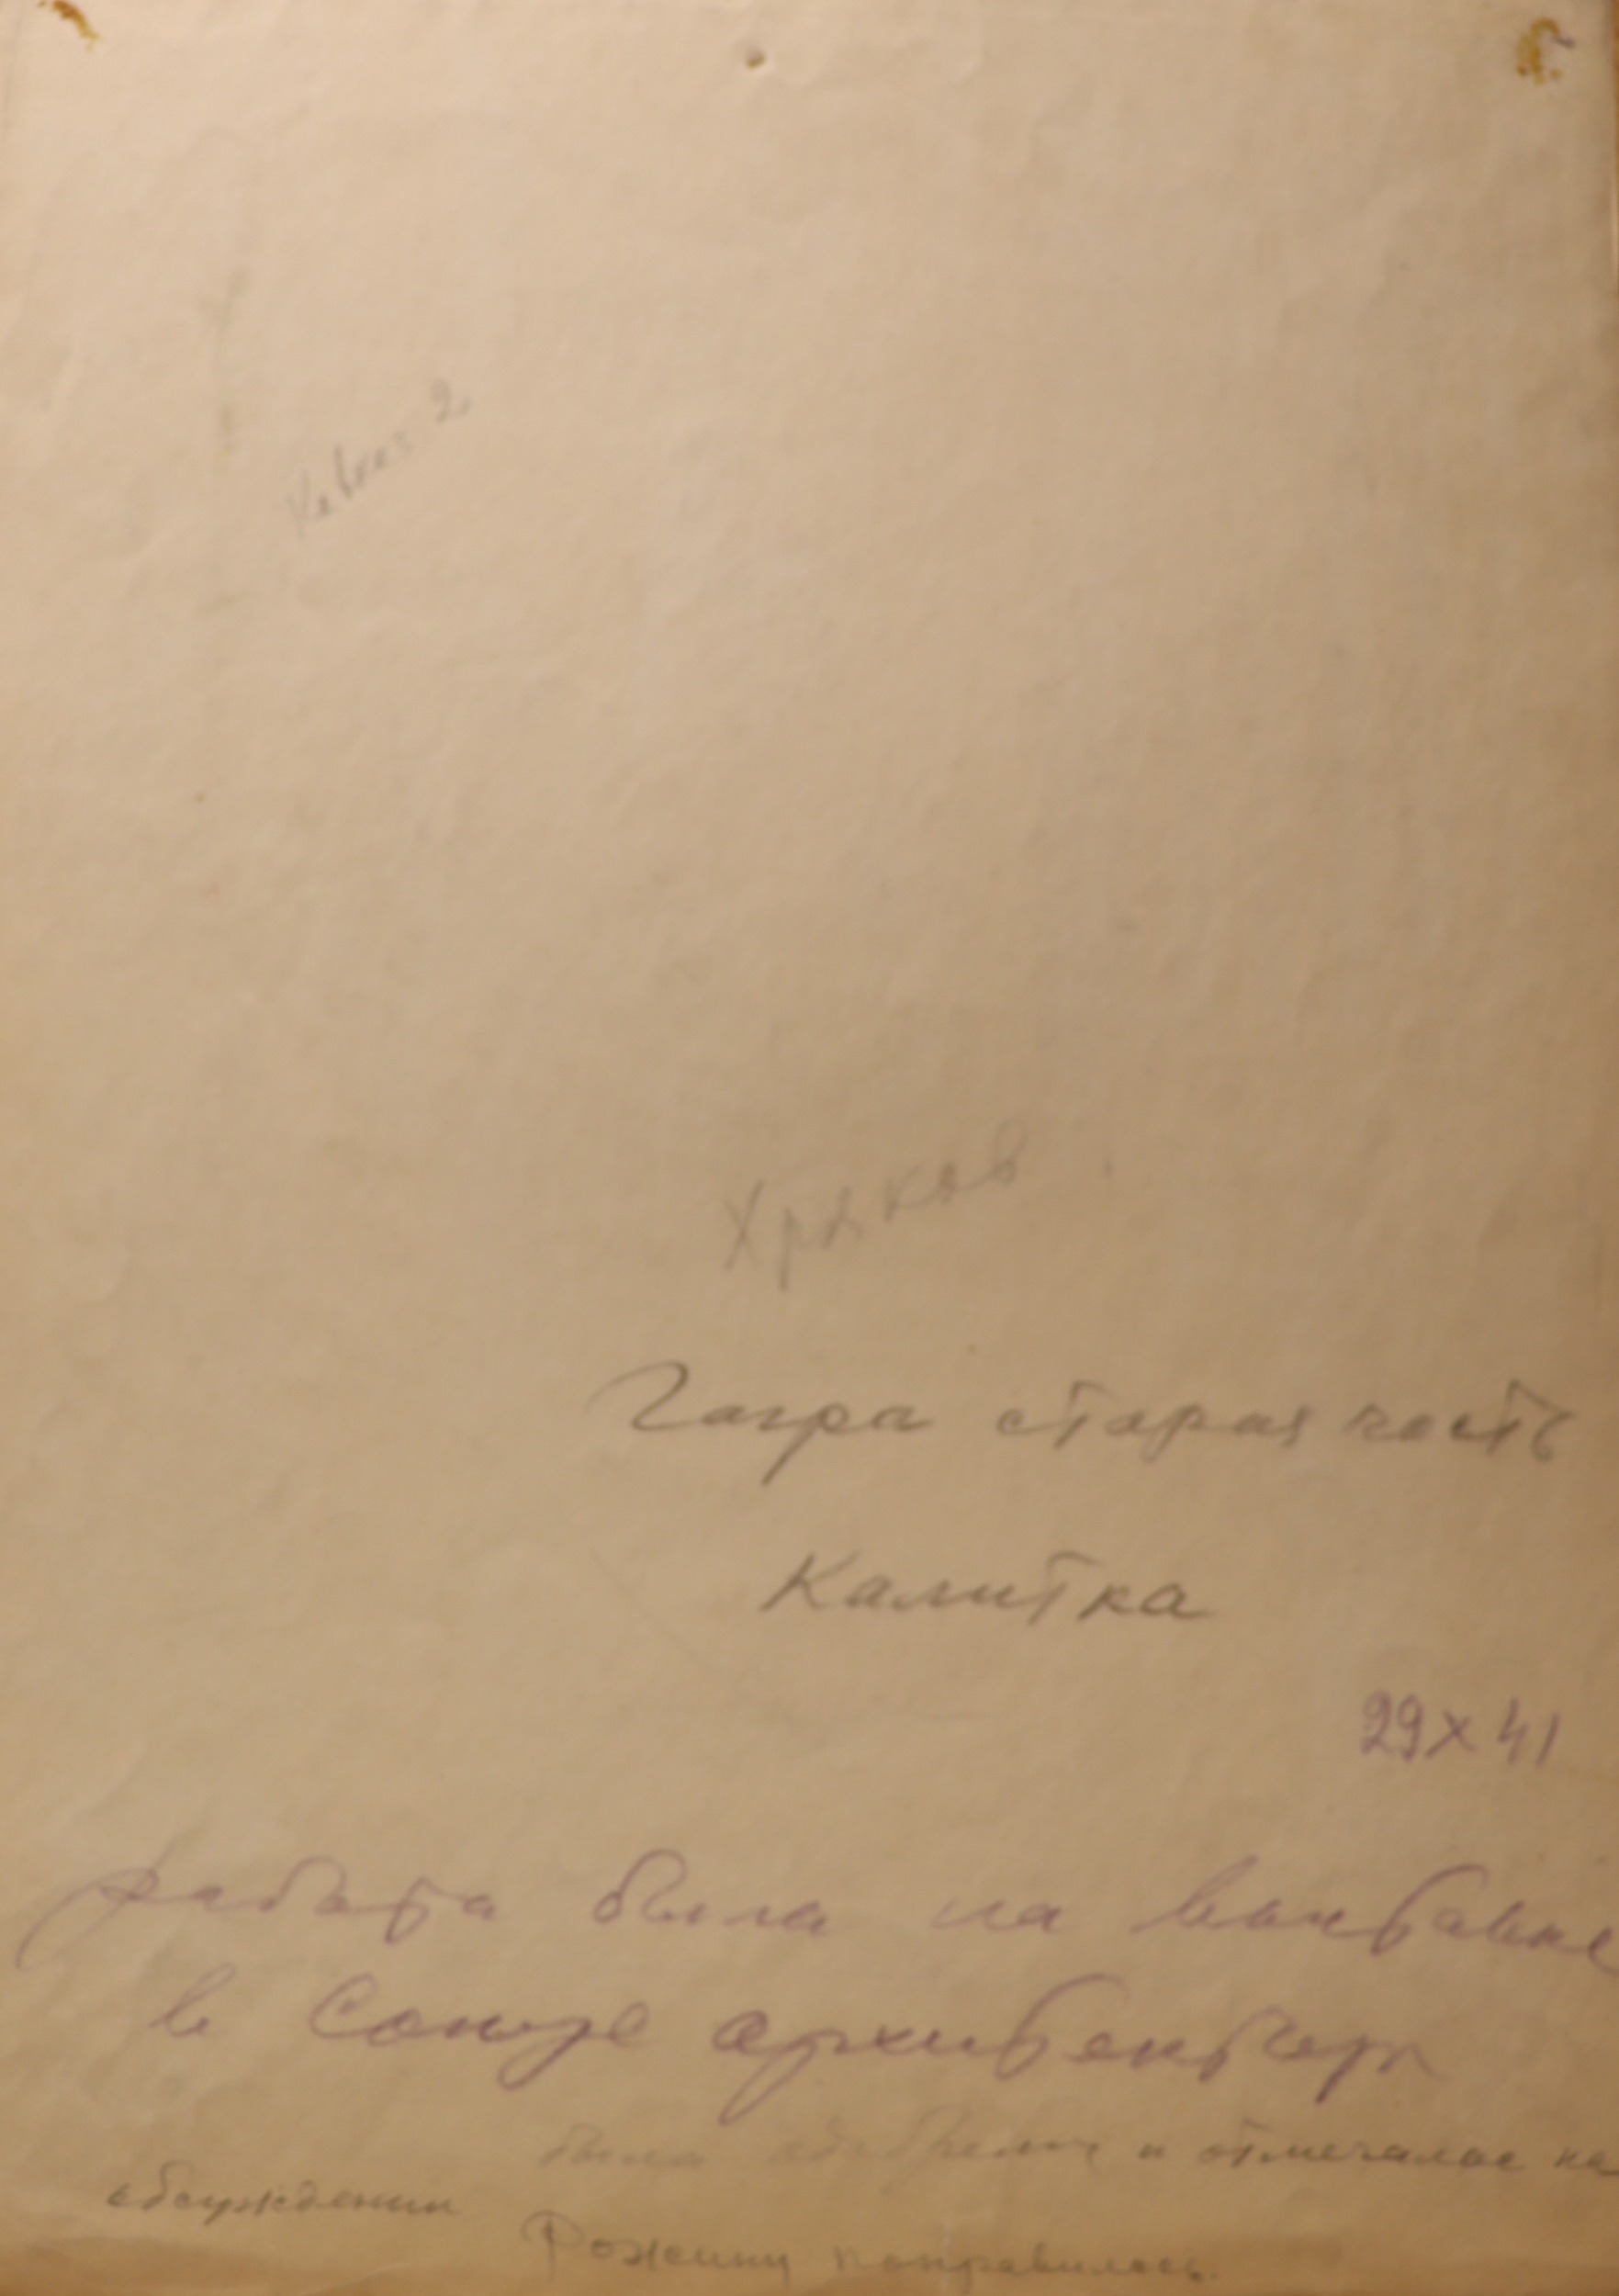 Кавказ 2
Хряков
Гагра старая часть
Калитка
29х41
работа была на выставке
в Союзе архитектора
была одобрена и отмечалас на
обсуждении
Рожину понравилась.